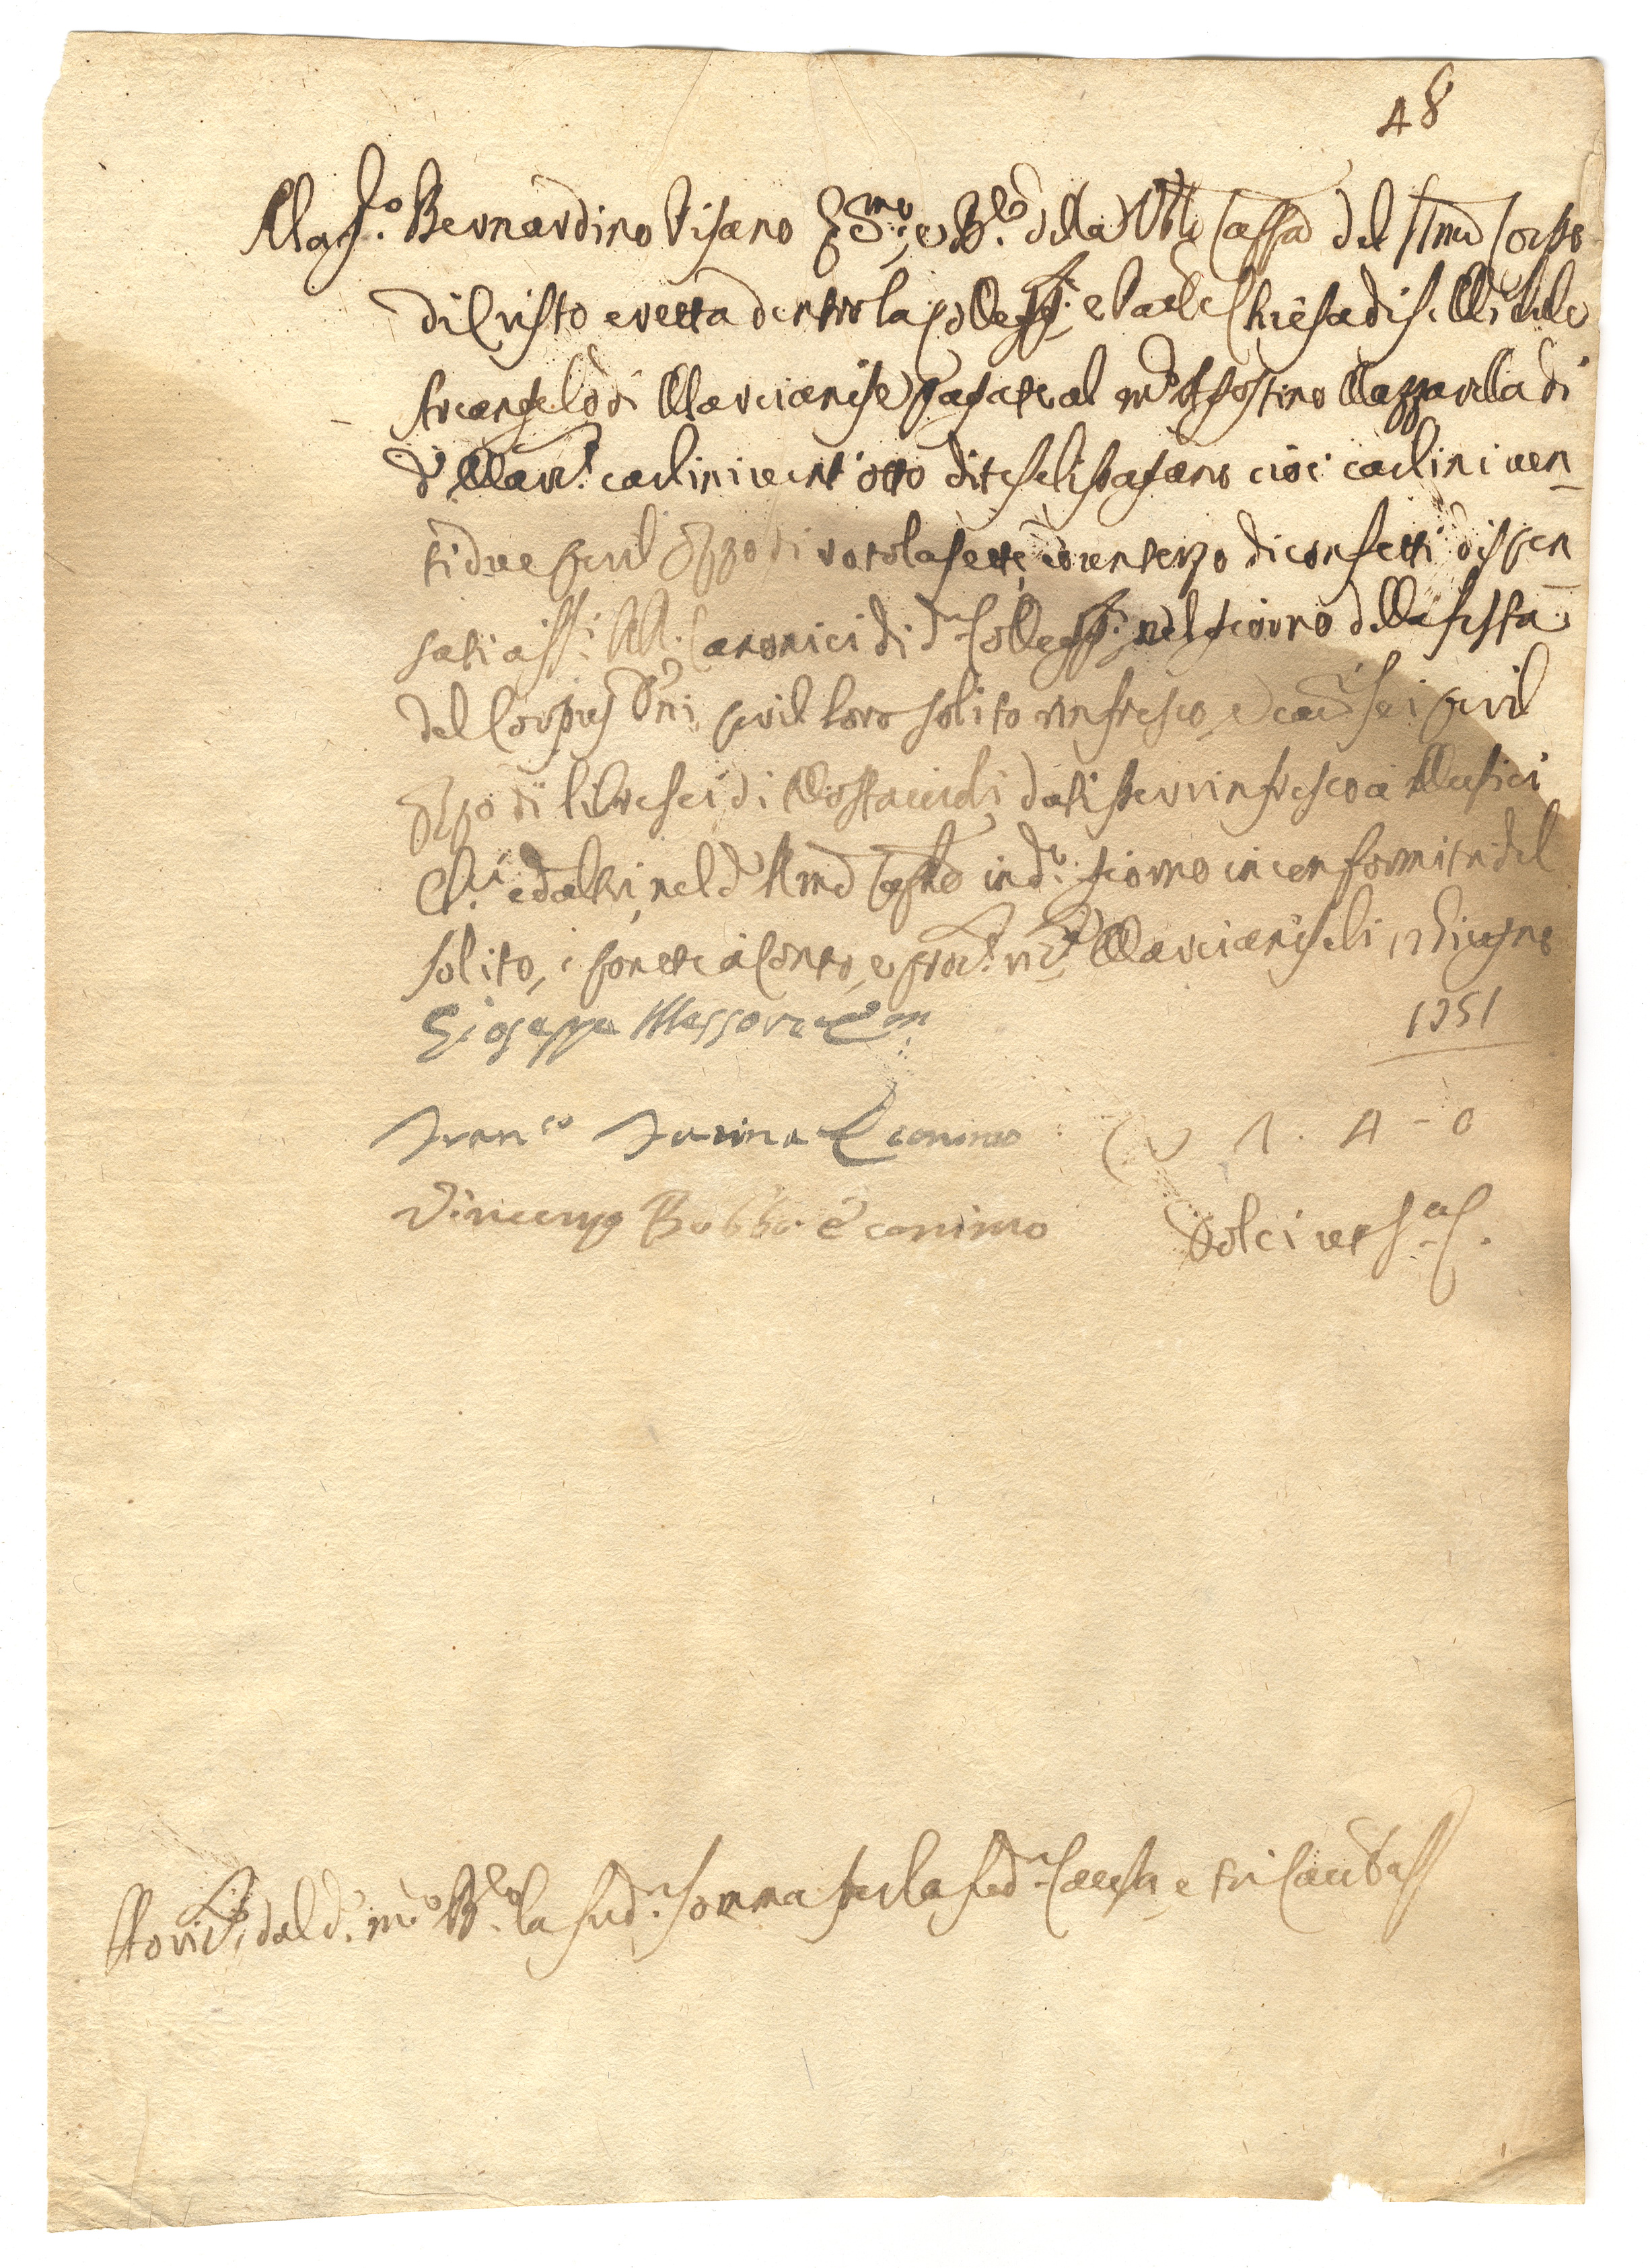 48
Mag.co Bernardino Pisano Ec.mo, e B.lo della Ven.le Cassa del SS.mo Corpo
di Cristo eretta dentro la Colleg.ta, e Par.le Chiesa di S. Michele
Arcangelo di Marcianise pagate al m.co Agostino Mazzarella di
d.o Marc.e carlini vent'otto ditelisi pagano cioè carlini ven-
tidue per il prezzo di rotola sette, ed un terzo di confetti dispen
sati a SS.i RR. Canonici di d.a Colleg.ta nel giorno della festa
del Corpus D.ni per il loro solito rinfresco, e car.ni sei per il
prezzo di libre sei di Mostaccioli, dati per rinfresco a Musici
ed altri, nel d.o in d.o giorno in conformità del
solito, e ponete a conto, Marcianise li 17 Giugno
1751
Gioseppe Messore Ec.mo
Fran.co Farina Economo
Vincenzo Bobbo Economo
Dolci
dal d.o m.co B.lo la sud.a somma per la sud.a Causa,